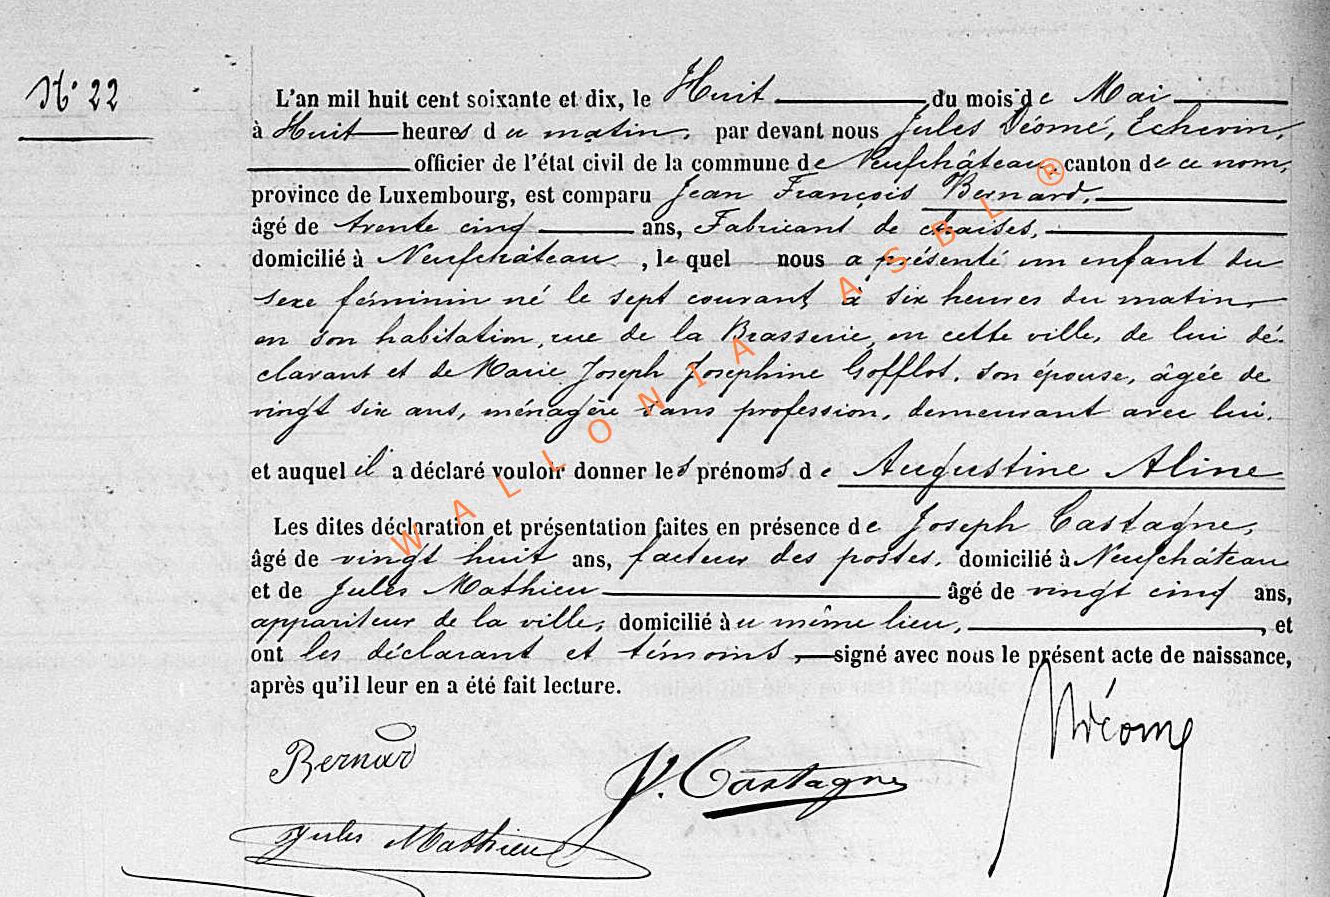 N° 22
L'an mil huit cent soixante et dix, le Huit du mois de Mai
à Huit heures du matin, par devant nous Jules Déome, Echevin,
officier de l'état civil de la commune de Neufchâteau, canton de ce nom,
province de Luxembourg, est comparu Jean François Bernard,
âgé de trente cinq ans, Fabricant de chaises,
domicilié à Neufchâteau, le quel nous a présenté un enfant du
sexe féminin né le sept courant, à six heures du matin,
en son habitation, rue de la Brasserie, en cette ville, de lui dé-
clarant et de Marie Joseph Josephine Gofflot, son épouse, âgée de
vingt six ans, ménagère sans profession, demeurant avec lui,
et auquel il a déclaré vouloir donner les prénoms de Augustine Aline
Les dites déclaration et présentation faites en présence de Joseph Castagne,
âgé de vingt huit ans, facteur des postes, domicilié à Neufchâteau
et de Jules Mathieu âgé de vingt cinq ans,
appariteur de la ville, domicilié au même lieu, et
ont les déclarant et témoins, signé avec nous le présent acte de naissance,
après qu'il leur en a été fait lecture.
Bernard
J. Castagne
Déome
Jules Mathieu
WALLONIA ASBL ®